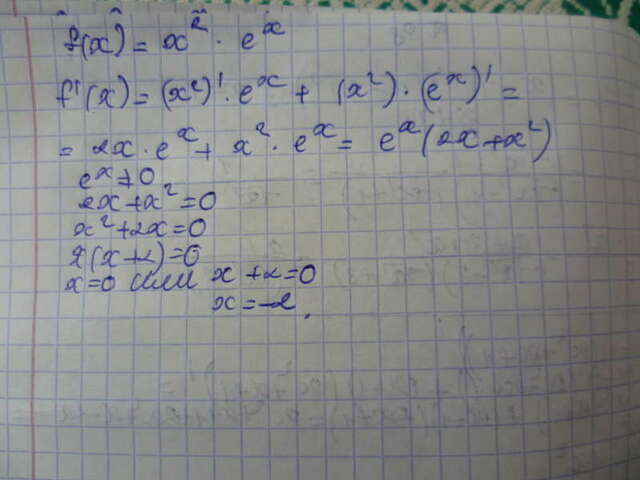 f(x) = x² · eˣ
f'(x) = (x²)' · eˣ + (x²) · (eˣ)' =
= 2x · eˣ + x² · eˣ = eˣ(2x+x²)
eˣ≠0
2x+x²=0
x²+2x=0
x(x+2)=0
x=0 или x+2=0
x=-2.